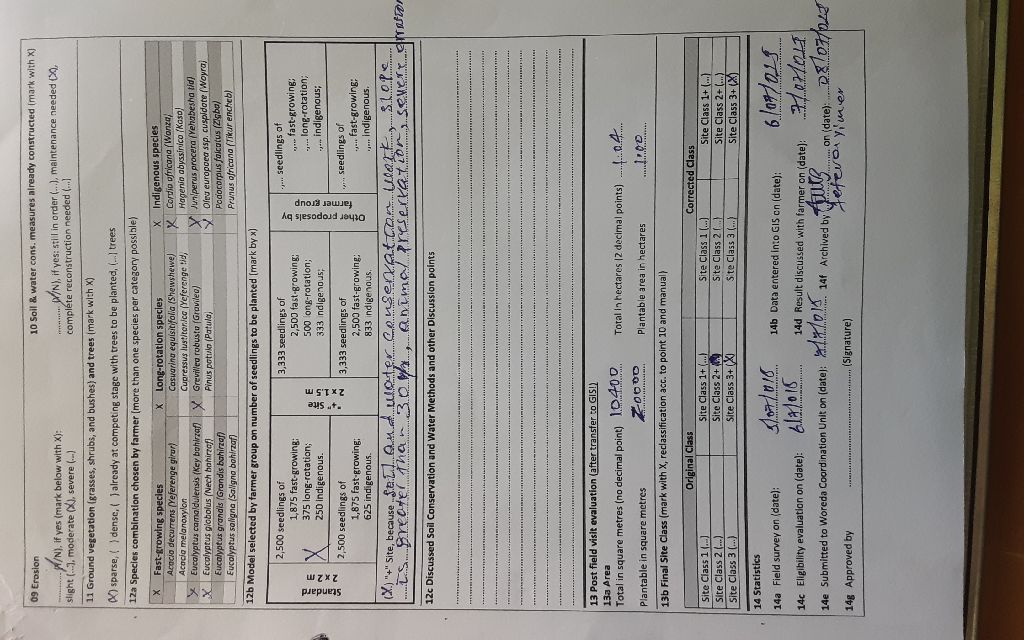 09 Erosion
(Y/N), if yes (mark below with X):
slight (...), moderate (X), severe (...)
10 Soil & water cons. measures already constructed (mark with X)
(Y/N), if yes: still in order (...), maintenance needed (X),
complete reconstruction needed (...)
11 Ground vegetation (grasses, shrubs, and bushes) and trees (mark with X)
(X) sparse, ( ) dense, ( ) already at competing stage with trees to be planted, (...) trees
12a Species combination chosen by farmer (more than one species per category possible)
X Fast-growing species X Long-rotation species X Indigenous species
Acacia decurrens (Yeferenge girar) Casuarina equisitifolia (Shewshewe) X Cordia africana (Wanza)
Acacia melanoxylon Cupressus lustitanica (Yeferenge tid) Hagenia abyssinica (Koso)
X Eucalyptus camaldulensis (Key bahirzaf) X Grevillea robusta (Gravilea) X Juniperus procera (Yehabesha tid)
X Eucalyptus globolus (Nech bahirzaf) Pinus petula (Patula) X Olea europaea ssp. cuspidate (Woyra)
Eucalyptus grandis (Grandis bahirzaf) Podocarpus falcatus (Zigba)
Eucalyptus saligna (Saligna bahirzaf) Prunus africana (Tikur encheb)
12b Model selected by farmer group on number of seedlings to be planted (mark by x)
Standard
2 x 2 m
2,500 seedlings of
1,875 fast-growing;
375 long-rotation;
250 indigenous.
X
2,500 seedlings of
1,875 fast-growing;
625 indigenous.
"+" Site
2 x 1.5 m
3,333 seedlings of
2,500 fast-growing;
500 long-rotation;
333 indigenous;
3,333 seedlings of
2,500 fast-growing;
833 indigenous.
Other proposals by
farmer group
.... seedlings of
.... fast-growing;
.... long-rotation;
.... indigenous;
.... seedlings of
.... fast-growing;
.... indigenous.
(X) "+" Site, because soil and water conservation work, slope
is greater than 30%, animal preservation, severe errosion
12c Discussed Soil Conservation and Water Methods and other Discussion points
13 Post field visit evaluation (after transfer to GIS!)
13a Area
Total in square metres (no decimal point) 10400 Total in hectares (2 decimal points) 1.04
Plantable in square metres 20000 Plantable area in hectares 1.00
13b Final Site Class (mark with X, reclassification acc. to point 10 and manual)
Original Class Corrected Class
Site Class 1 (...) Site Class 1+ (...) Site Class 1 (...) Site Class 1+ (...)
Site Class 2 (...) Site Class 2+ Site Class 2 (...) Site Class 2+ (...)
Site Class 3 (...) Site Class 3+ (X) Site Class 3 (...) Site Class 3+ (X)
14 Statistics
14a Field survey on (date): 14b Data entered into GIS on (date):
14c Eligibility evaluation on (date): 14d Result discussed with farmer on (date):
14e Submitted to Woreda Coordination Unit on (date): 14f Archived by on (date):
14g Approved by (Signature)